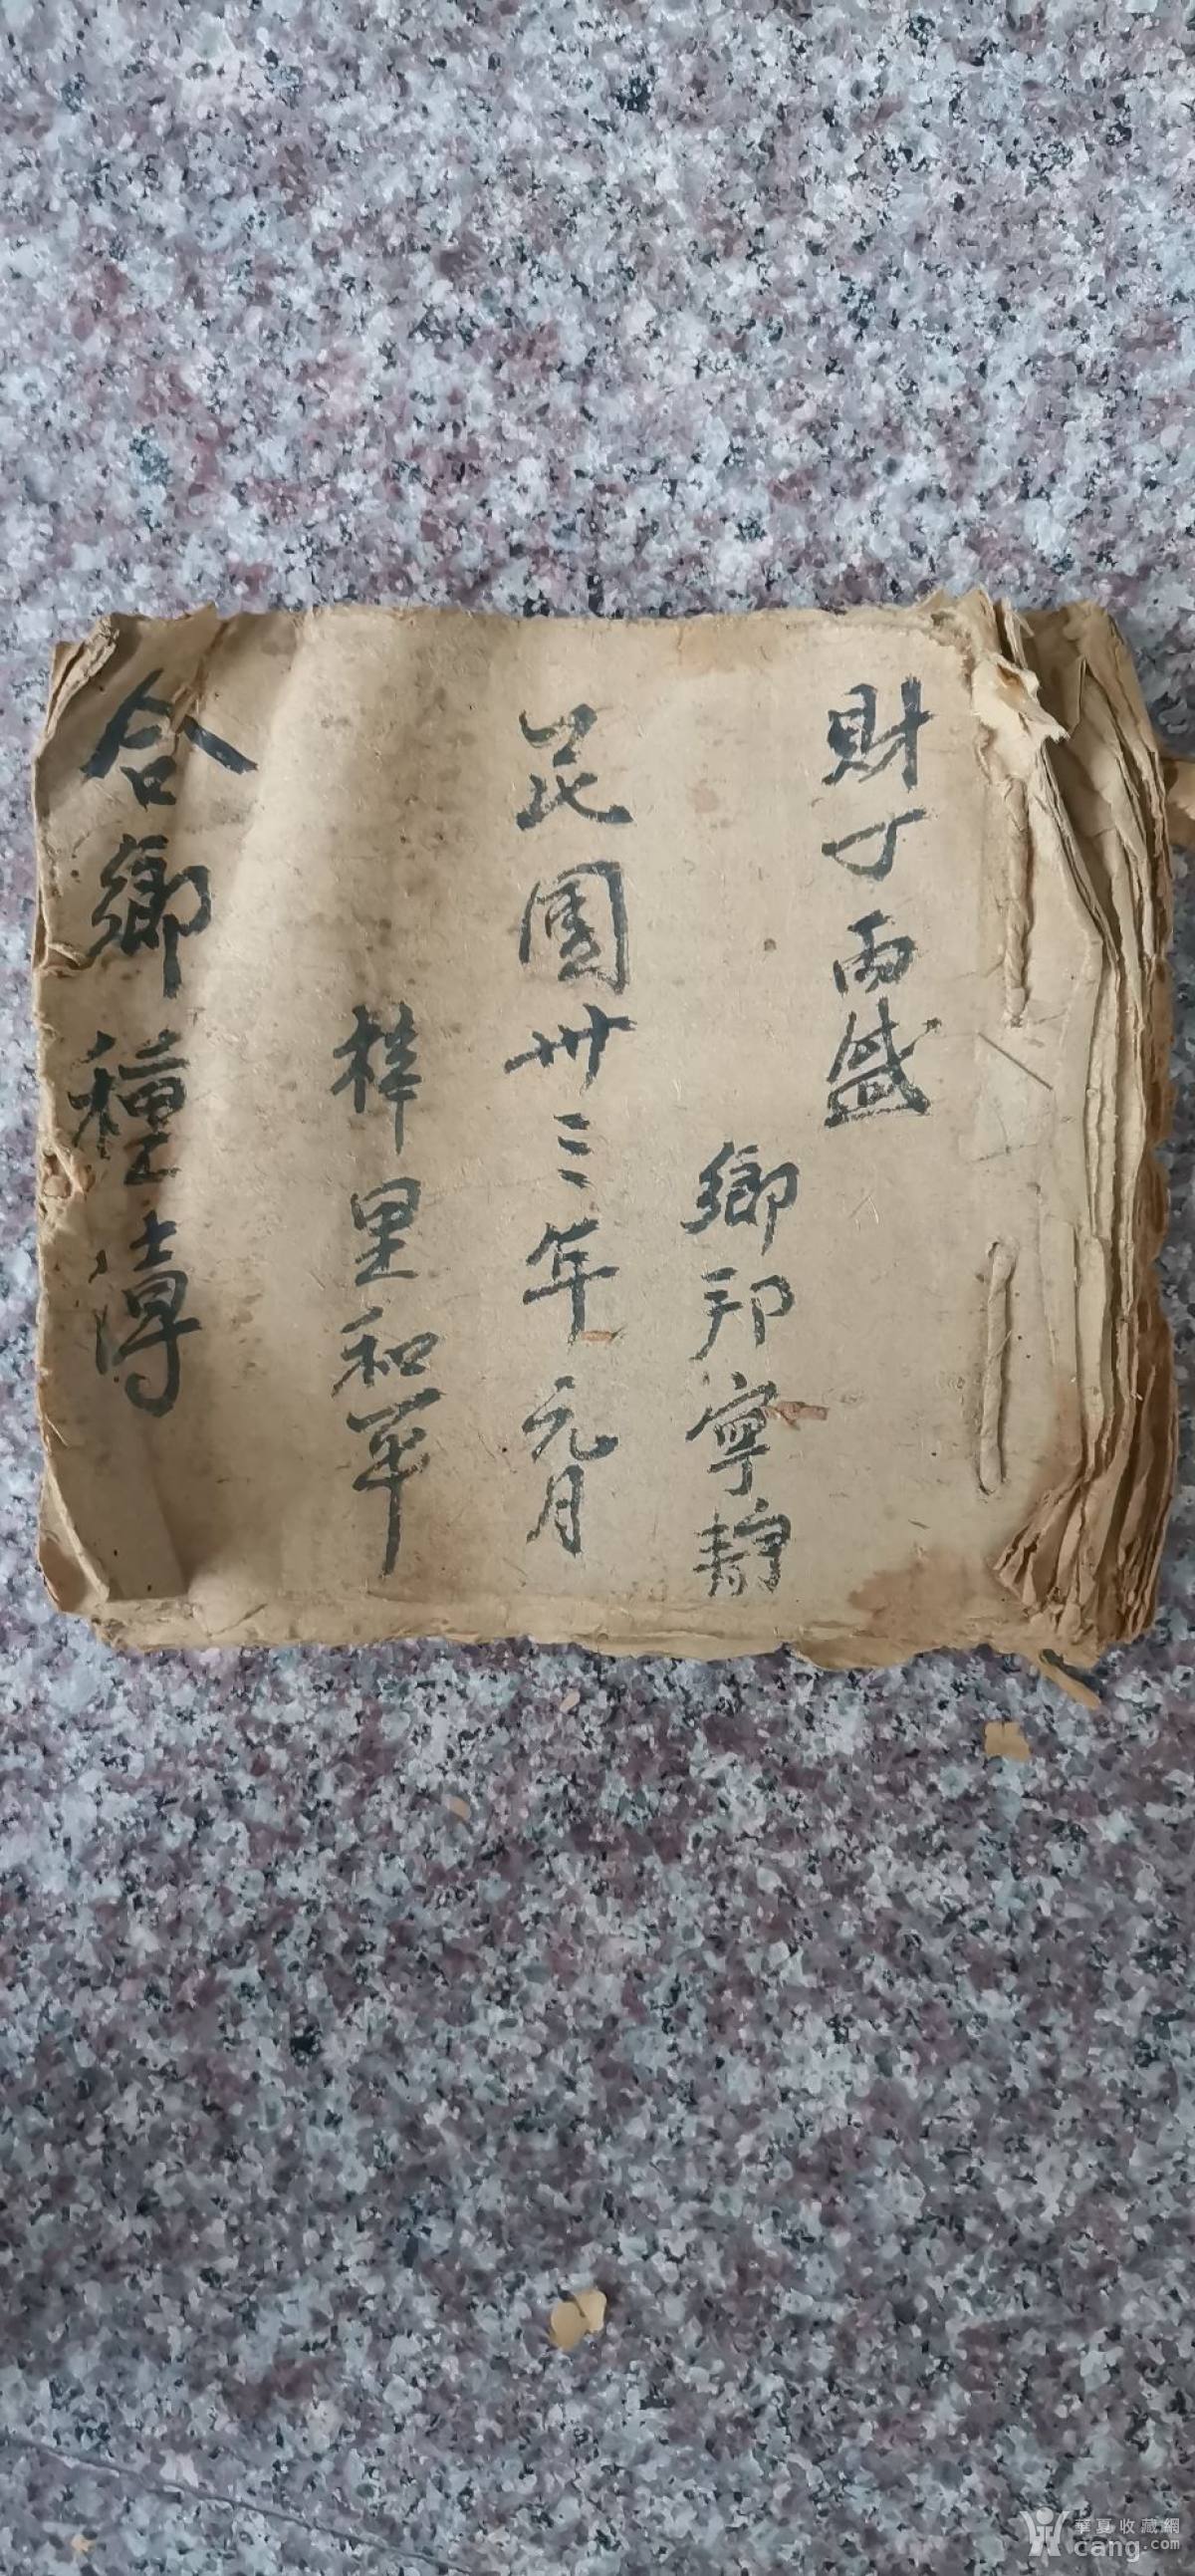 財丁両盛
鄉邦寧靜
民國卅三年元月
梓里和平
合鄉種簿
華夏收藏網
cang.com